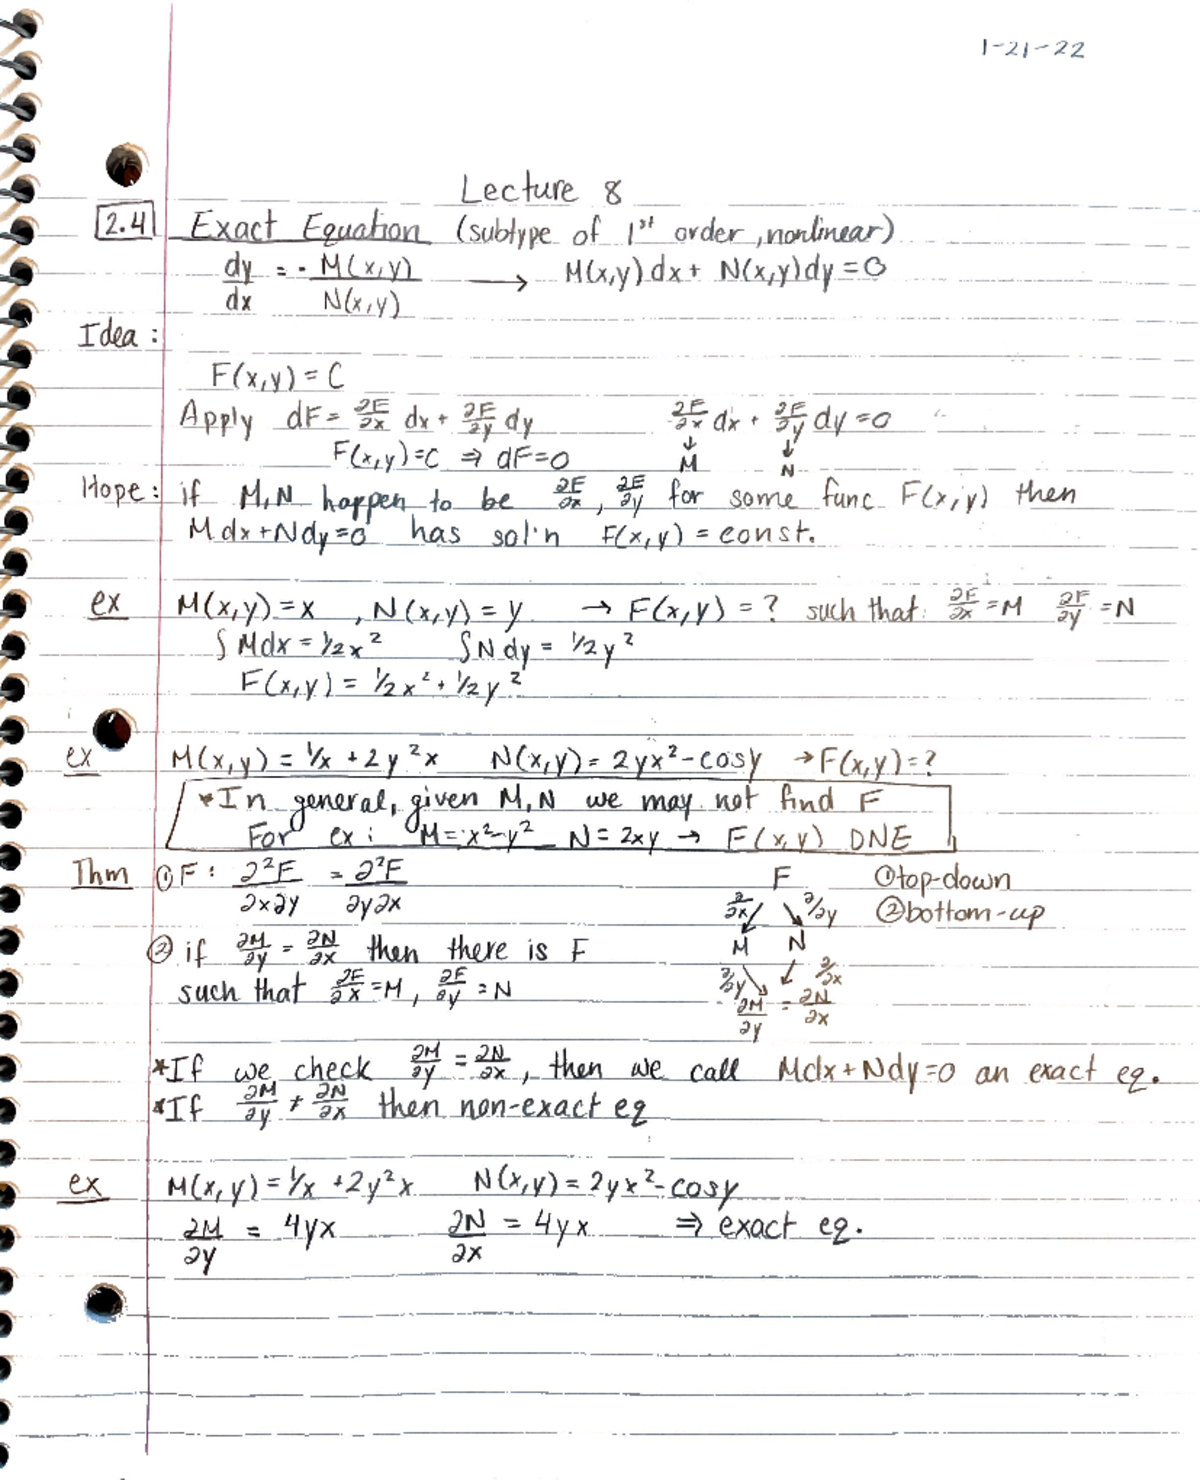 1-21-22
Lecture 8
2.4 Exact Equation (subtype of 1st order, nonlinear)
dy/dx = - M(x,y)/N(x,y) → M(x,y)dx + N(x,y)dy = 0
Idea:
F(x,y) = C
Apply dF = ∂F/∂x dx + ∂F/∂y dy ∂F/∂x dx + ∂F/∂y dy = 0
F(x,y) = C ⇒ dF = 0 ↓ M ↓ N
Hope: if M,N happen to be ∂F/∂x, ∂F/∂y for some func F(x,y) then
Mdx + Ndy = 0 has sol'n F(x,y) = const.
ex M(x,y) = x , N(x,y) = y → F(x,y) = ? such that: ∂F/∂x = M ∂F/∂y = N
∫Mdx = 1/2x² ∫Ndy = 1/2y²
F(x,y) = 1/2x² + 1/2y²
ex M(x,y) = 1/x + 2y²x N(x,y) = 2yx² - cosy → F(x,y) = ?
*In general, given M,N we may not find F
For ex: M = x²-y² N = 2xy → F(x,y) DNE
Thm ① F: ∂²F/∂x∂y = ∂²F/∂y∂x F ① top-down
∂/∂x ↙ ↘ ∂/∂y ② bottom-up
② if ∂M/∂y = ∂N/∂x then there is F M N
such that ∂F/∂x = M, ∂F/∂y = N ∂/∂y ↘ ↙ ∂/∂x
∂M/∂y = ∂N/∂x
*If we check ∂M/∂y = ∂N/∂x, then we call Mdx + Ndy = 0 an exact eq.
*If ∂M/∂y ≠ ∂N/∂x then non-exact eq
ex M(x,y) = 1/x + 2y²x N(x,y) = 2yx² - cosy
∂M/∂y = 4yx ∂N/∂x = 4yx ⇒ exact eq.